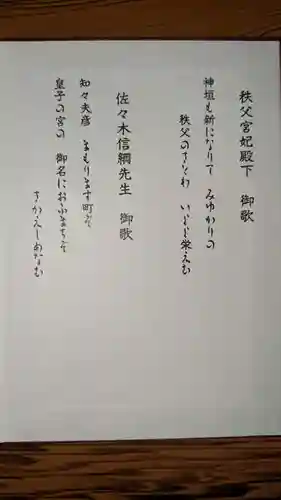 秩父宮妃殿下 御歌
神垣も新になりて みゆかりの
秩父のさとわ いよよ栄えむ
佐々木信綱先生 御歌
知々夫彦 まもります町ぞ
皇子の宮の 御名におふまちぞ
さかえしめなむ